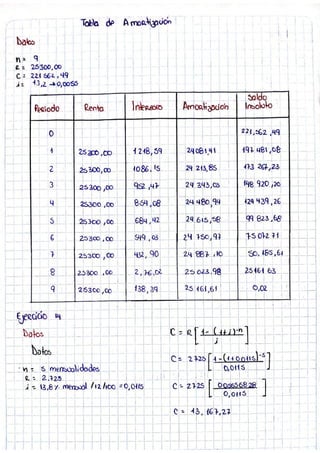 Tabla de Amortización
Datos
n= 9
R= 25300,00
C= 221562,49
i= 13,2 → 0,0055
Periodo Renta Intereses Amortización Saldo Insoluto
0 221,562,49
1 25300,00 1218,59 24081,41 197481,08
2 25300,00 1086,15 24213,85 173267,23
3 25300,00 952,47 24343,03 148920,20
4 25300,00 859,08 24480,94 124439,26
5 25300,00 684,42 24615,58 99823,68
6 25300,00 549,03 24750,97 75072 71
7 25300,00 412,90 24887,10 50,185,61
8 25300,00 2,76,02 25023,98 25161 63
9 25300,00 138,39 25161,61 0,02
Ejercicio 4
Datos
Datos
n= 5 mensualidades
R= 2,725
i= 13,8% mensual /12/100 = 0,0115
C = R [1-(1+i)-n / i]
C= 2725 [1-(1+0,0115)-5 / 0,0115]
C= 2725 [0,05556828 / 0,0115]
C= 13,167,27